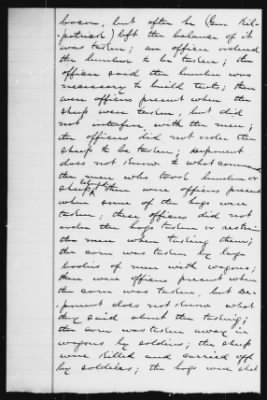 bacon, but after he (Gen Kil-
patrick) left the balance of it
was taken; an officer ordered
the lumber to be taken; the
officer said the lumber was
necessary to build tents; there
were officers present when the
sheep were taken, but did
not interfere with the men;
the officers did not order the
sheep to be taken; deponent
does not know to what command
the men who took lumber or
sheep belonged there were officers present
when some of the hogs were
taken; these officers did not
order the hogs taken or restrain
the men when taking them;
the corn was taken by large
bodies of men with wagons;
there were officers present when
the corn was taken, but de-
ponent does not know what
they said about the taking;
the corn was taken away in
wagons by soldiers; the sheep
were killed and carried off
by soldiers; the hogs were shot